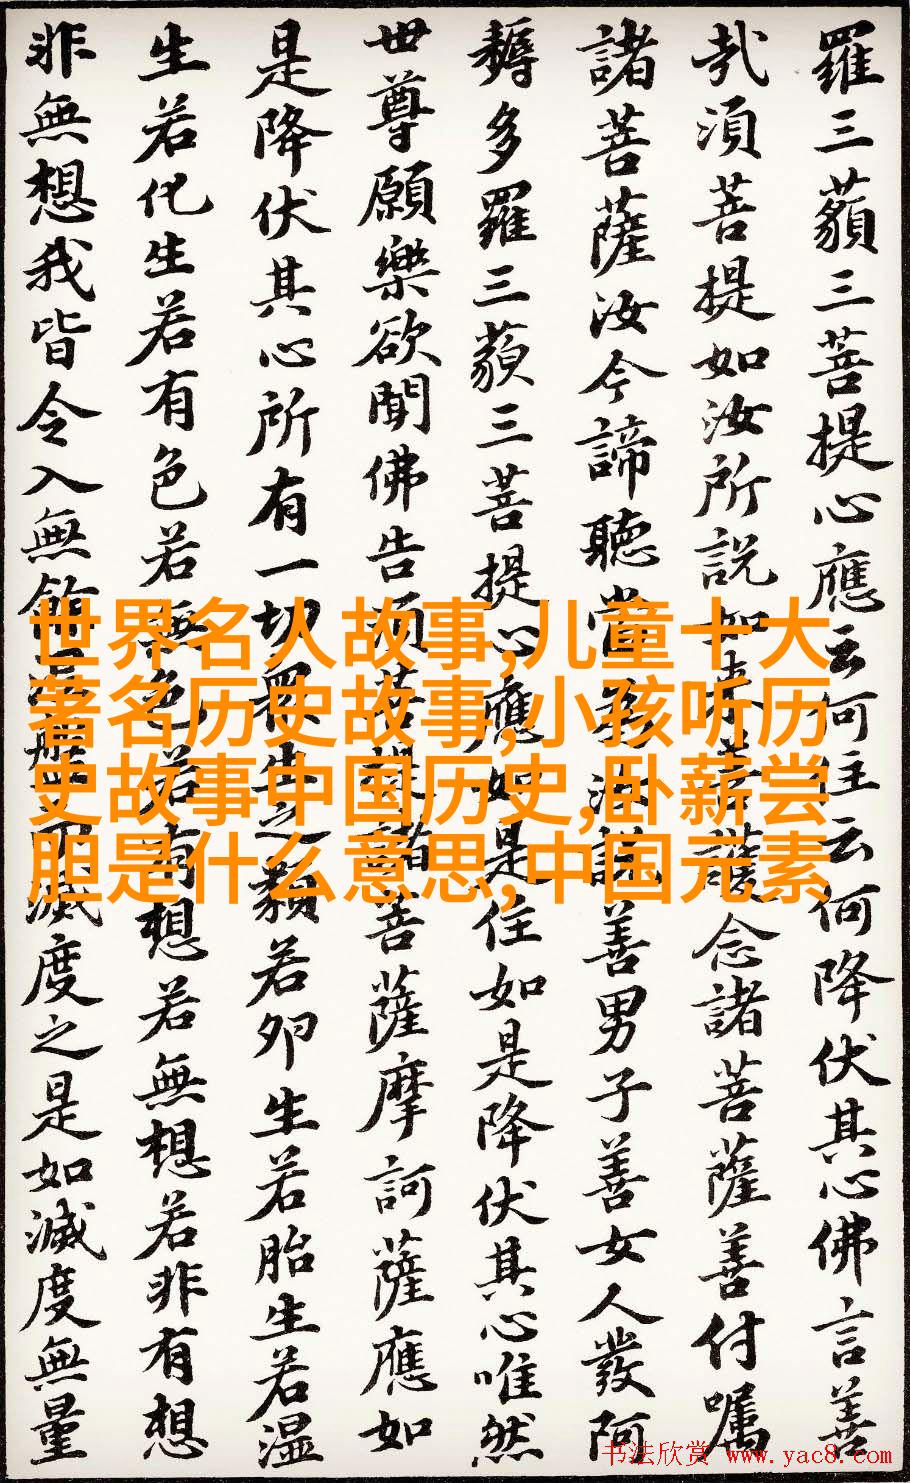 羅三藐三菩提心應云何住云何降伏其心佛言善
哉須菩提如汝所說如來善護念諸菩薩善付囑
諸菩薩汝今諦聽當為汝說善男子善女人發阿
耨多羅三藐三菩提心應如是住如是降伏其心唯然
世尊願樂欲聞佛告須菩提諸菩薩摩訶薩應如
是降伏其心所有一切眾生之類若卵生若胎生若湿
生若化生若有色若無色若有想若無想若非有想
非無想我皆令入無餘涅槃而滅度之是如滅度無量
世界名人故事,儿童十大
著名历史故事,小孩听历
史故事中国历史,卧薪尝
胆是什么意思,中国元素
书法欣赏 www.yac8.com